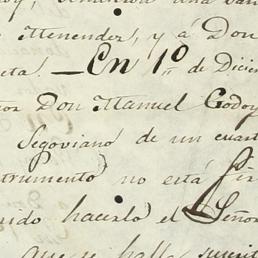 Menendez, y á Don
eta. — En 1º de Dicie
or Don Manuel Godoy
Segoviano de un cuart
trumento no está fir
ido hacerlo el Señor
que se halla